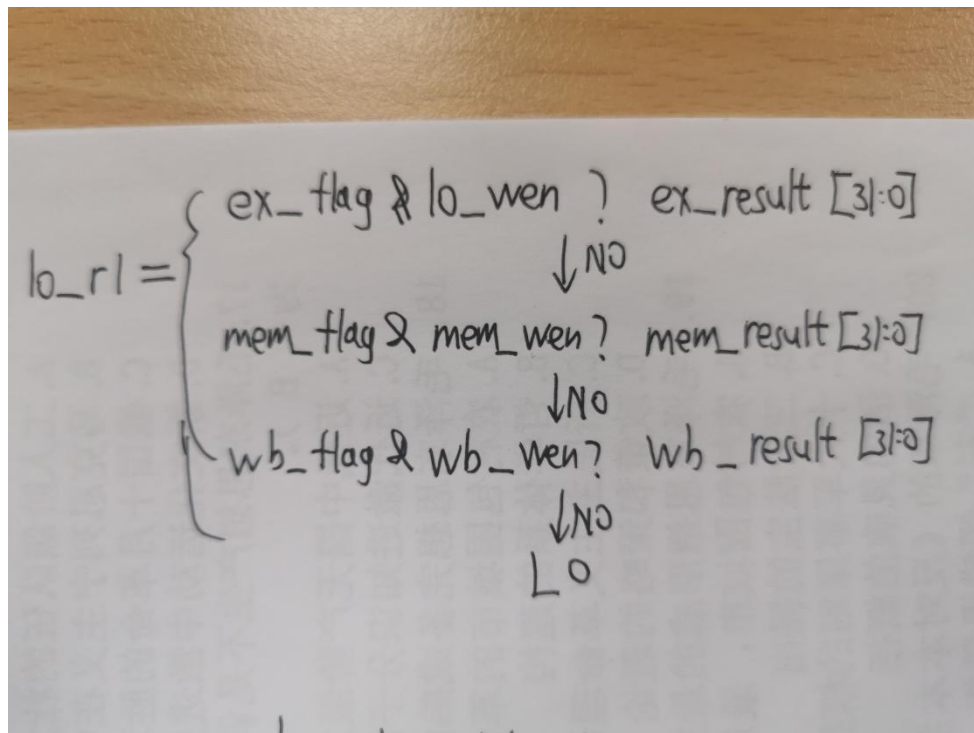 ex_flag & lo_wen ? ex_result [31:0]
↓NO
lo_r1 =
mem_flag & mem_wen? mem_result [31:0]
↓NO
wb_flag & wb_wen? wb_result [31:0]
↓NO
LO